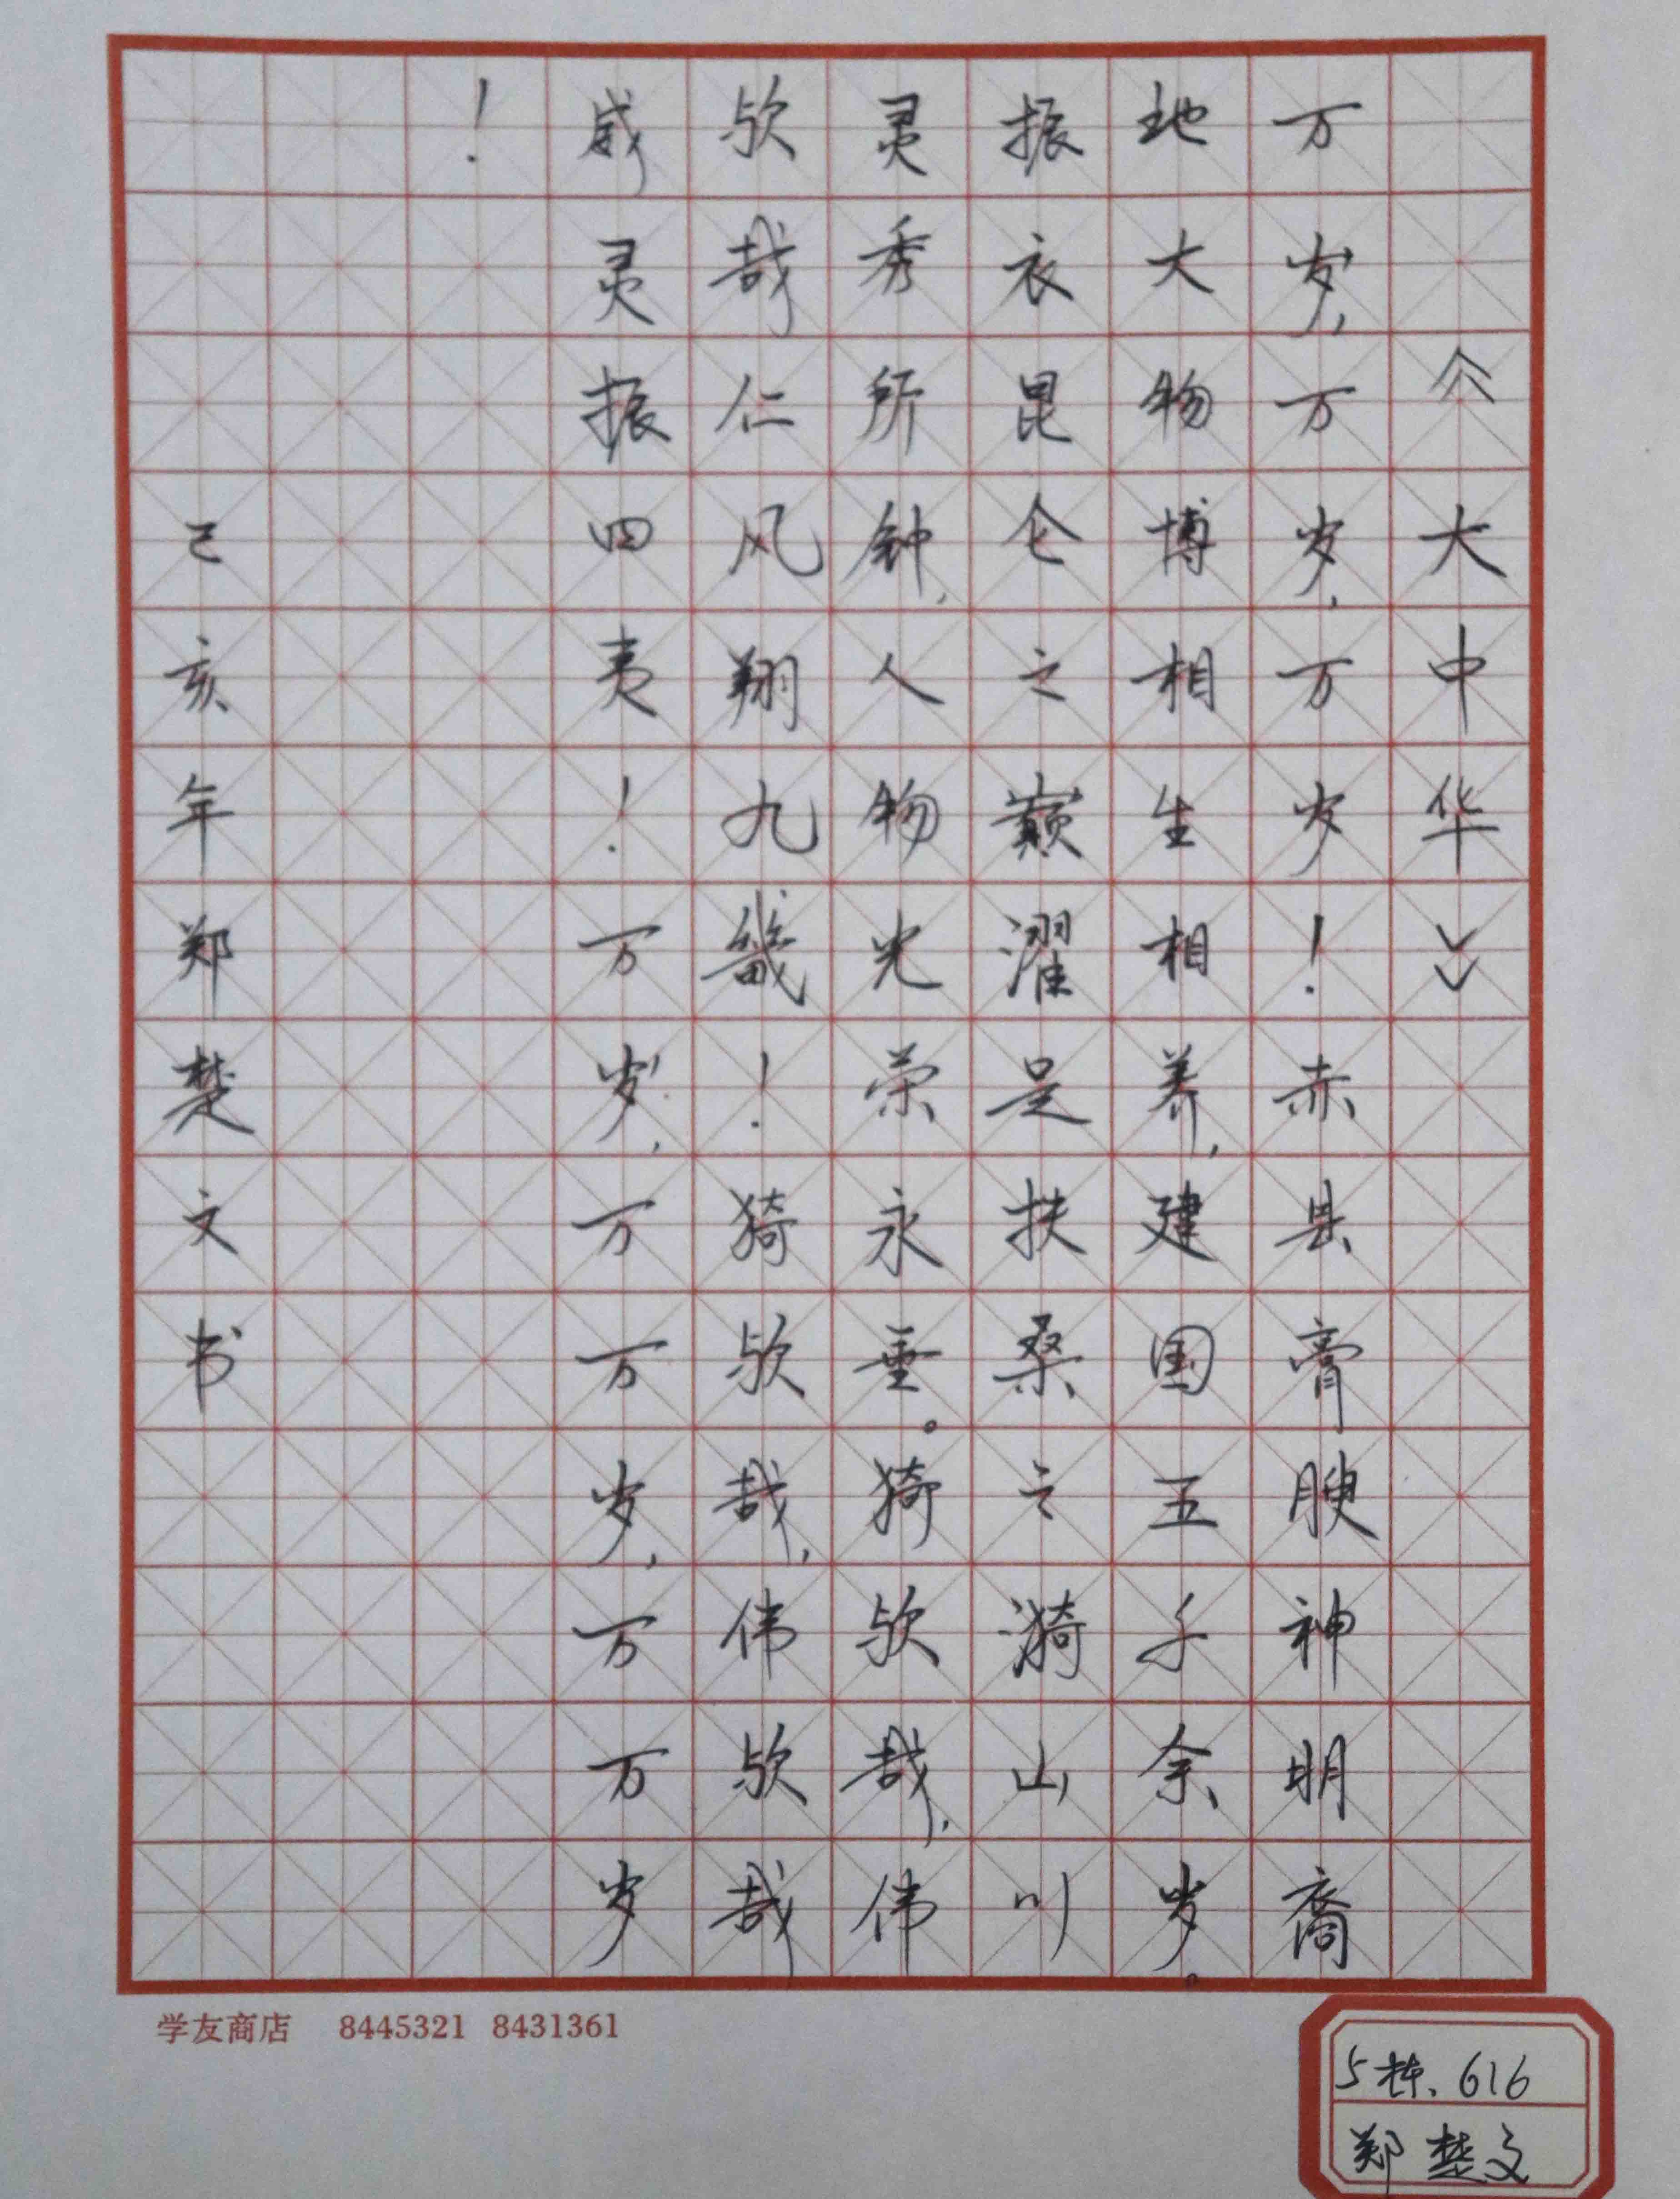 《大中华》
万岁，万岁，万岁！赤县膏腴神明裔
地大物博相生相养，建国五千余岁。
振衣昆仑之巅濯足扶桑之漪山川
灵秀所钟，人物光荣永垂。猗欤哉，伟
欤哉仁风翔九畿！猗欤哉，伟欤哉
威灵振四夷！万岁，万万岁，万万岁
！
己亥年郑楚文书
学友商店 8445321 8431361
5栋.616
郑楚文